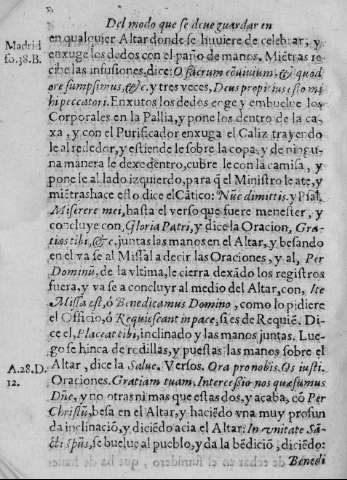 Del modo que se deue guardar en
Madrid
fo.38.B.
en qualquier Altar donde se huuiere de celebrar, y
enxuge los dedos con el paño de manos. Miẽtras re
cibe las infusiones, dice: O sacrum cõuiuium. &, quod
ore sumpsimus, &c. y tres veces, Deus propitius esto mi
hi peccatori. Enxutos los dedos coge y embuelue los
Corporales en la Pallia, y pone los dentro de la ca
xa, y con el Purificador enxuga el Caliz trayendo
le al rededor, y estiende le sobre la copa, y de ningu-
na manera le dexe dentro, cubre le con la camisa, y
pone le al lado izquierdo, para q̃ el Ministro le ate, y
miẽtras hace esto dice el Cãtico: Nũc dimittis. y Psal.
Miserere mei, hasta el verso que fuere menester, y
concluye con, Gloria Patri, y dice la Oracion, Gra-
tias tibi, &c. juntas las manos en el Altar, y besando
en el va se al Missal a decir las Oraciones, y al, Per
Dominũ, de la vltima, le cierra dexãdo los registros
fuera, y va se a concluyr al medio del Altar, con, Ite
Missa est, ò Benedicamus Domino, como lo pidiere
el Officio, ò Requiescant in pace, si es de Requiẽ. Di
ce el, Placeat tibi, inclinado y las manos juntas. Lue-
go se hinca de rodillas, y puestas las manos sobre el
Altar, dice la Salue. Versos. Ora pro nobis. Os iusti.
A.28.D.
12.
Oraciones. Gratiam tuam. Intercessio nos quæsumus
Dñe, y no otras ni mas que estas dos, y acaba, cõ Per
Christũ, besa en el Altar, y haciẽdo vna muy profun
da inclinació, y diciẽdo acia el Altar: In vnitate Sã-
cti spũs, se buelue al pueblo, y da la bẽdició, diciẽdo:
Benedi